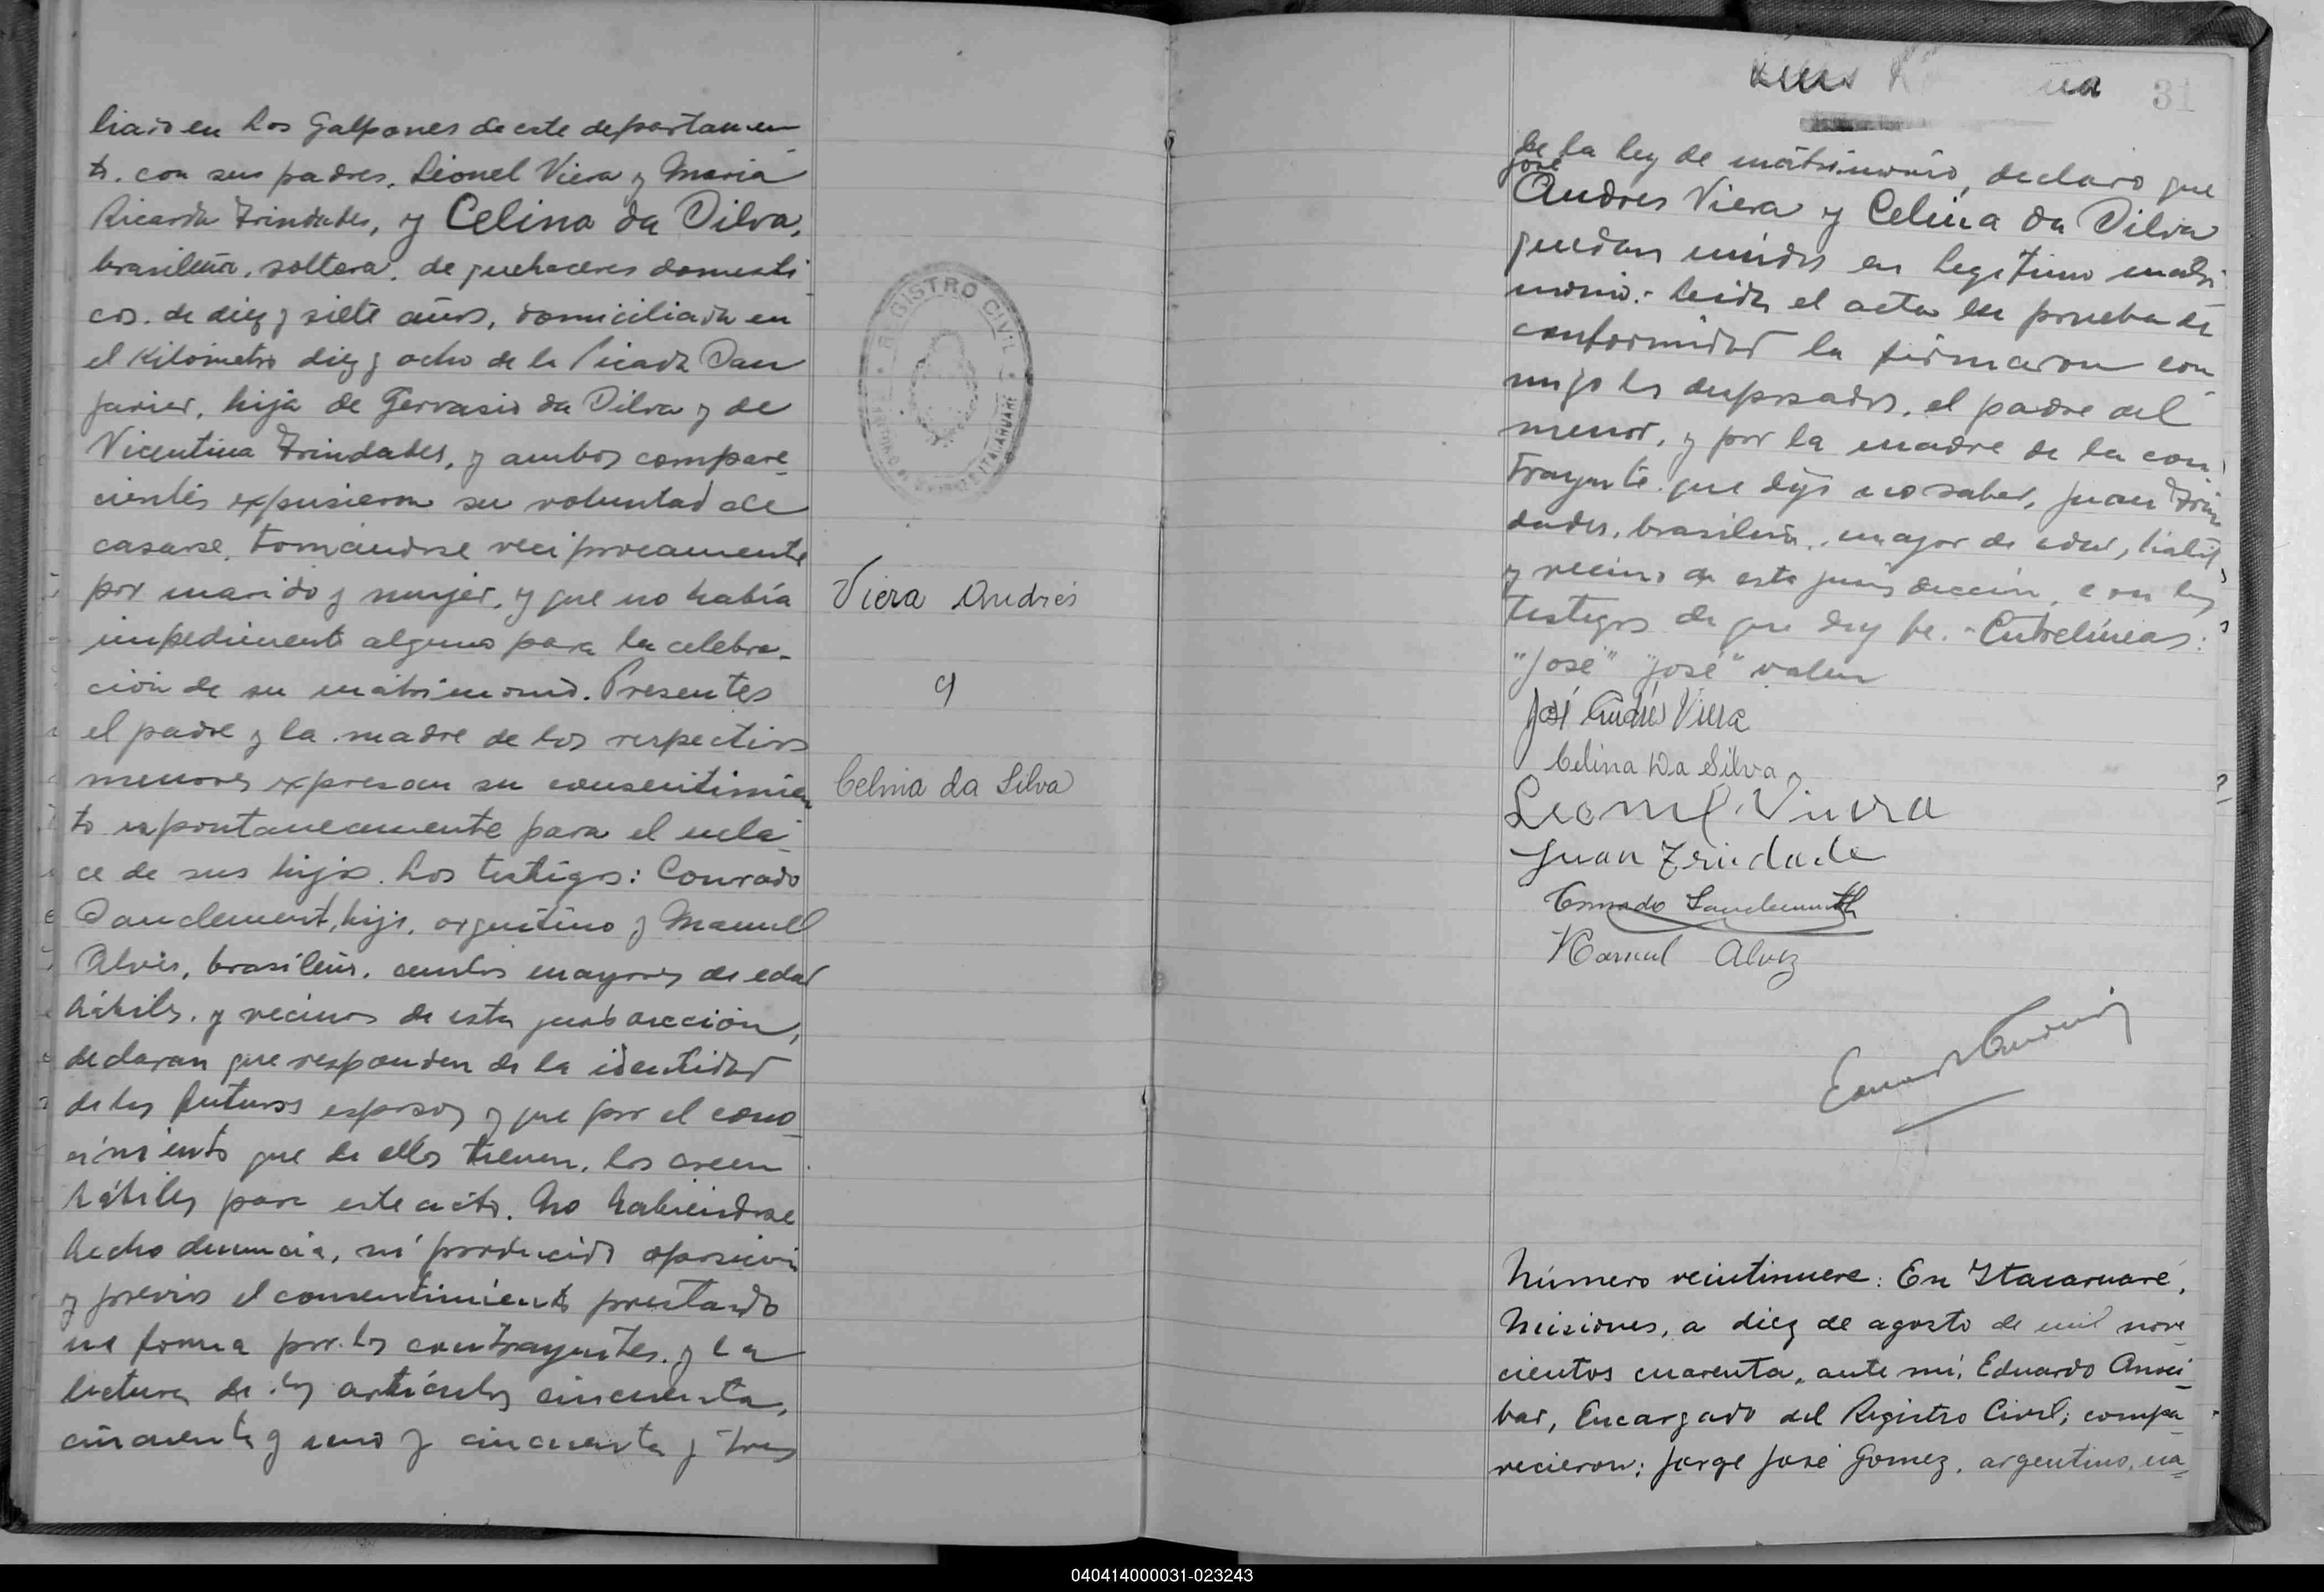 liado en Los Galpones de este departamen-
to. con sus padres, Lionel Viera y Maria
Ricarda Trindades, y Celina da Silva,
brasileña, soltera, de quehaceres domesti
cos. de diez y siete años, domiciliada en
el Kilómetro diez y ocho de la Picada San
Javier, hija de Gervasio da Silva y de
Vicentina Trindades, y ambos compare-
cientes expusieron su voluntad de
casarse, tomandose reciprocamente
por marido y mujer, y que no había
impedimento alguno para la celebra-
ción de su matrimonio. Presentes
el padre y la madre de los respectivos
menores expresan su consentimien
to espontaneamente para el enla-
ce de sus hijos. Los testigos: Conrado
Sanclement, hijo, argentino y Manuel
Alvis, brasileño, ambos mayores de edad
hábiles, y vecinos de esta jurisdicción,
declaran que responden de la identidad
de los futuros esposos y que por el cono-
cimiento que de ellos tienen, los creen
hábiles para este acto. No habiendose
hecho denuncia, ni producido oposición
y previos el consentimiento prestado
en forma por los contrayentes, y la
lectura de los artículos cincuenta,
cincuenta y uno y cincuenta y tres
REGISTRO CIVIL
ITACARUARE
Viera Andrés
y
Celina da Silva
31
de la ley de matrimonio, declaro que
José
Andres Viera y Celina da Silva
quedan unidos en legitimo matri-
monio.- Leida el acta en prueba de
conformidad la firmaron con-
migo los desposados, el padre del
menor, y por la madre de la con-
trayente que dijo no saber, Juan Trin
dades, brasileño, mayor de edad, habil
y vecino de esta jurisdicción, con los
testigos de que doy fe.- Entrelíneas:
"José" "José" valen
José Andrés Viera
Celina Da Silva
Leonel Vieira
Juan Trindade
Conrado Sanclement h
Manuel Alvez
Número veintinueve: En Itacaruaré,
Misiones, a diez de agosto de mil nove
cientos cuarenta, ante mí, Eduardo Anzei-
bar, Encargado del Registro Civil; compa-
recieron: Jorge José Gomez, argentino, na-
040414000031-023243